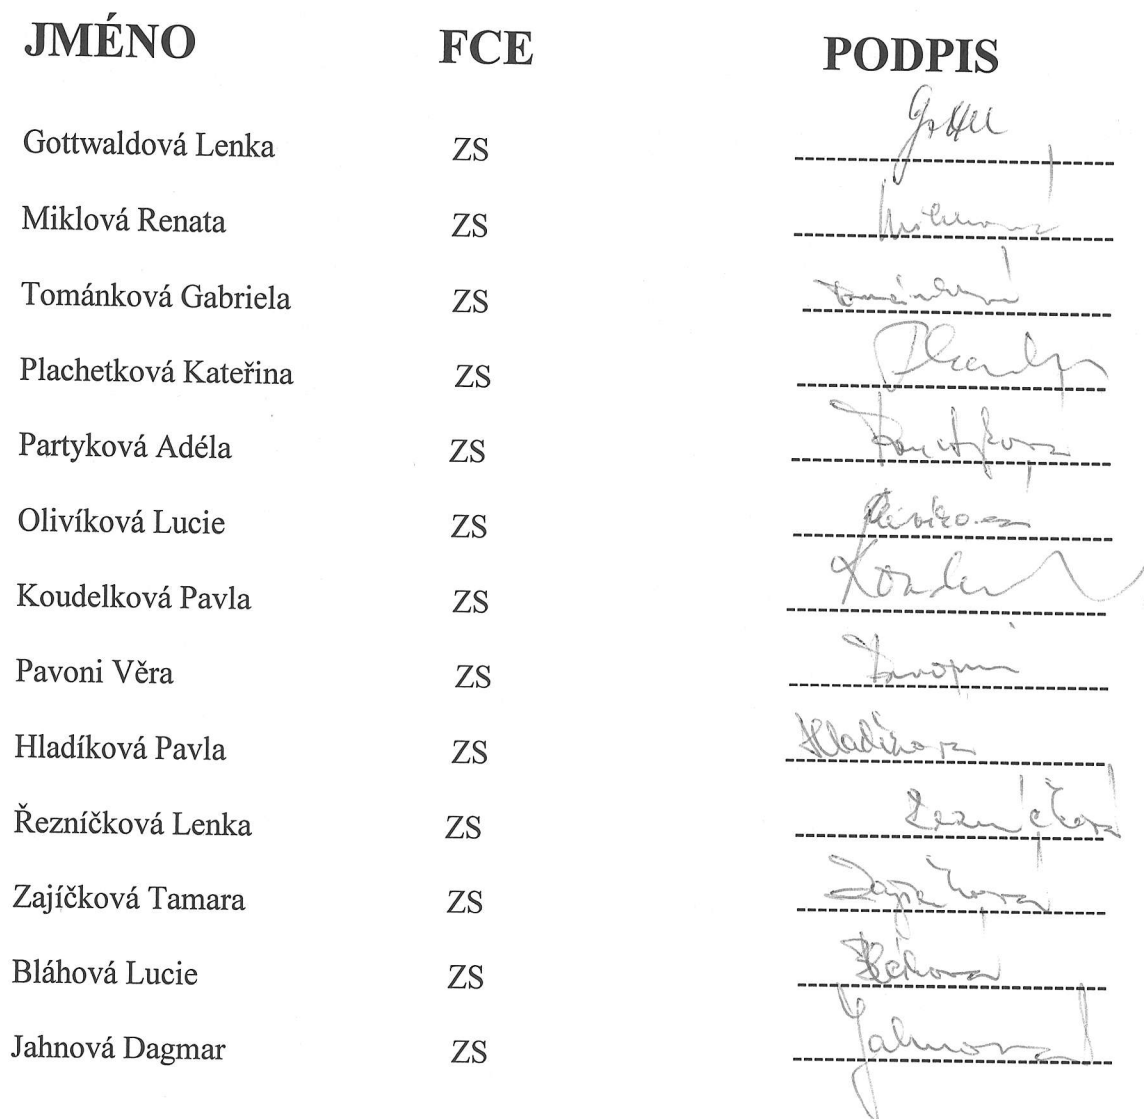 JMÉNO FCE PODPIS
Gottwaldová Lenka ZS
Miklová Renata ZS
Tománková Gabriela ZS
Plachetková Kateřina ZS
Partyková Adéla ZS
Olivíková Lucie ZS
Koudelková Pavla ZS
Pavoni Věra ZS
Hladíková Pavla ZS Hladíková
Řezníčková Lenka ZS
Zajíčková Tamara ZS
Bláhová Lucie ZS Bláhová
Jahnová Dagmar ZS Jahnová